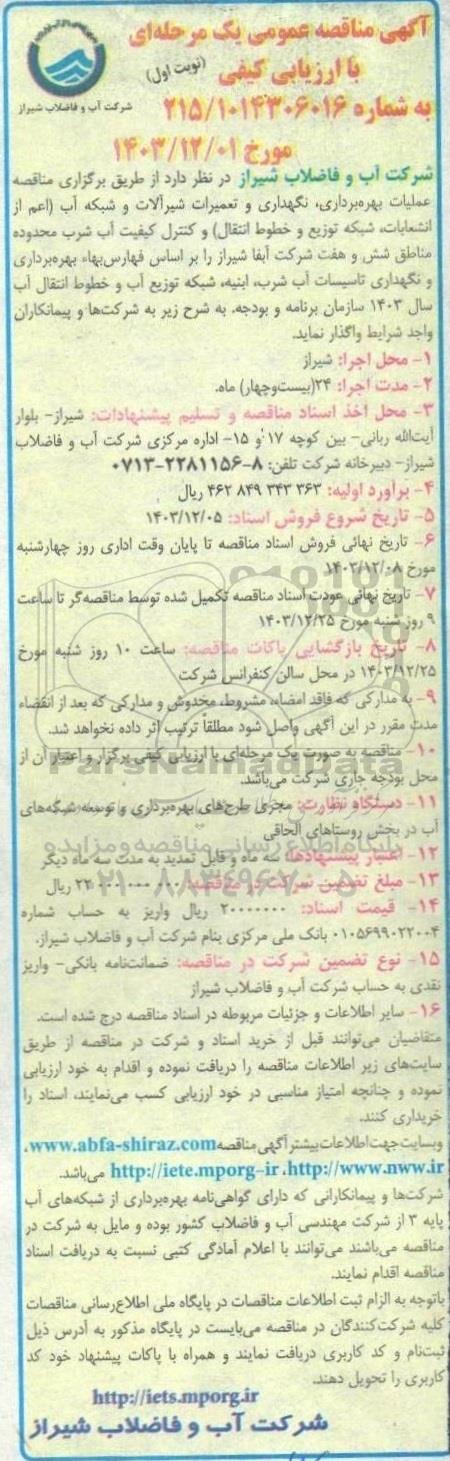 آگهی مناقصه عمومی یک مرحله‌ای
با ارزیابی کیفی
(نوبت اول)
به شماره ۲۱۵/۱۰۱۴۳۰۶۰۱۶
شرکت آب و فاضلاب شیراز
مورخ ۱۴۰۳/۱۲/۰۱
شرکت آب و فاضلاب شیراز در نظر دارد از طریق برگزاری مناقصه
عملیات بهره‌برداری، نگهداری و تعمیرات شیرآلات و شبکه آب (اعم از
انشعابات، شبکه توزیع و خطوط انتقال) و کنترل کیفیت آب شرب محدوده
مناطق شش و هفت شرکت آبفا شیراز را بر اساس فهارس‌بهاء بهره‌برداری
و نگهداری تاسیسات آب شرب، ابنیه، شبکه توزیع آب و خطوط انتقال آب
سال ۱۴۰۳ سازمان برنامه و بودجه. به شرح زیر به شرکت‌ها و پیمانکاران
واجد شرایط واگذار نماید.
۱- محل اجرا: شیراز
۲- مدت اجرا: ۲۴(بیست‌وچهار) ماه.
۳- محل اخذ اسناد مناقصه و تسلیم پیشنهادات: شیراز- بلوار
آیت‌الله ربانی- بین کوچه ۱۷ و ۱۵- اداره مرکزی شرکت آب و فاضلاب
شیراز- دبیرخانه شرکت تلفن: ۸-۰۷۱۳-۲۲۸۱۱۵۶
۴- برآورد اولیه: ۳۶۳ ۳۴۳ ۸۴۹ ۴۶۲ ریال
۵- تاریخ شروع فروش اسناد: ۱۴۰۳/۱۲/۰۵
۶- تاریخ نهائی فروش اسناد مناقصه تا پایان وقت اداری روز چهارشنبه
مورخ ۱۴۰۳/۱۲/۰۸
۷- تاریخ نهائی عودت اسناد مناقصه تکمیل شده توسط مناقصه‌گر تا ساعت
۹ روز شنبه مورخ ۱۴۰۳/۱۲/۲۵
۸- تاریخ بازگشایی پاکات مناقصه: ساعت ۱۰ روز شنبه مورخ
۱۴۰۳/۱۲/۲۵ در محل سالن کنفرانس شرکت
۹- به مدارکی که فاقد امضاء، مشروط، مخدوش و مدارکی که بعد از انقضاء
مدت مقرر در این آگهی واصل شود مطلقاً ترتیب اثر داده نخواهد شد.
۱۰- مناقصه به صورت یک مرحله‌ای با ارزیابی کیفی برگزار و اعتبار آن از
محل بودجه جاری شرکت می‌باشد.
ParsNamadData
۱۱- دستگاه نظارت: مجری طرح‌های بهره‌برداری و توسعه شبکه‌های
آب در بخش روستاهای الحاقی
پایگاه اطلاع رسانی مناقصه و مزایده
۱۲- اعتبار پیشنهادها: سه ماه و قابل تمدید به مدت سه ماه دیگر
۰۲۱-۸۸۳۴۹۶۷۰-۵
۱۳- مبلغ تضمین شرکت در مناقصه: ۲۲۰۰۰۰۰۰۰۰۰ ریال
۱۴- قیمت اسناد: ۲۰۰۰۰۰۰ ریال واریز به حساب شماره
۰۱۰۵۶۹۹۰۲۲۰۰۴ بانک ملی مرکزی بنام شرکت آب و فاضلاب شیراز.
۱۵- نوع تضمین شرکت در مناقصه: ضمانت‌نامه بانکی- واریز
نقدی به حساب شرکت آب و فاضلاب شیراز
۱۶- سایر اطلاعات و جزئیات مربوطه در اسناد مناقصه درج شده است.
متقاضیان می‌توانند قبل از خرید اسناد و شرکت در مناقصه از طریق
سایت‌های زیر اطلاعات مناقصه را دریافت نموده و اقدام به خود ارزیابی
نموده و چنانچه امتیاز مناسبی در خود ارزیابی کسب می‌نمایند، اسناد را
خریداری کنند.
وبسایت جهت اطلاعات بیشتر آگهی مناقصه www.abfa-shiraz.com،
http://iete.mporg-ir ،http://www.nww.ir می‌باشد.
شرکت‌ها و پیمانکارانی که دارای گواهی‌نامه بهره‌برداری از شبکه‌های آب
پایه ۳ از شرکت مهندسی آب و فاضلاب کشور بوده و مایل به شرکت در
مناقصه می‌باشند می‌توانند با اعلام آمادگی کتبی نسبت به دریافت اسناد
مناقصه اقدام نمایند.
باتوجه به الزام ثبت اطلاعات مناقصات در پایگاه ملی اطلاع‌رسانی مناقصات
کلیه شرکت‌کنندگان در مناقصه می‌بایست در پایگاه مذکور به آدرس ذیل
ثبت‌نام و کد کاربری دریافت نمایند و همراه با پاکات پیشنهاد خود کد
کاربری را تحویل دهند.
http://iets.mporg.ir
شرکت آب و فاضلاب شیراز